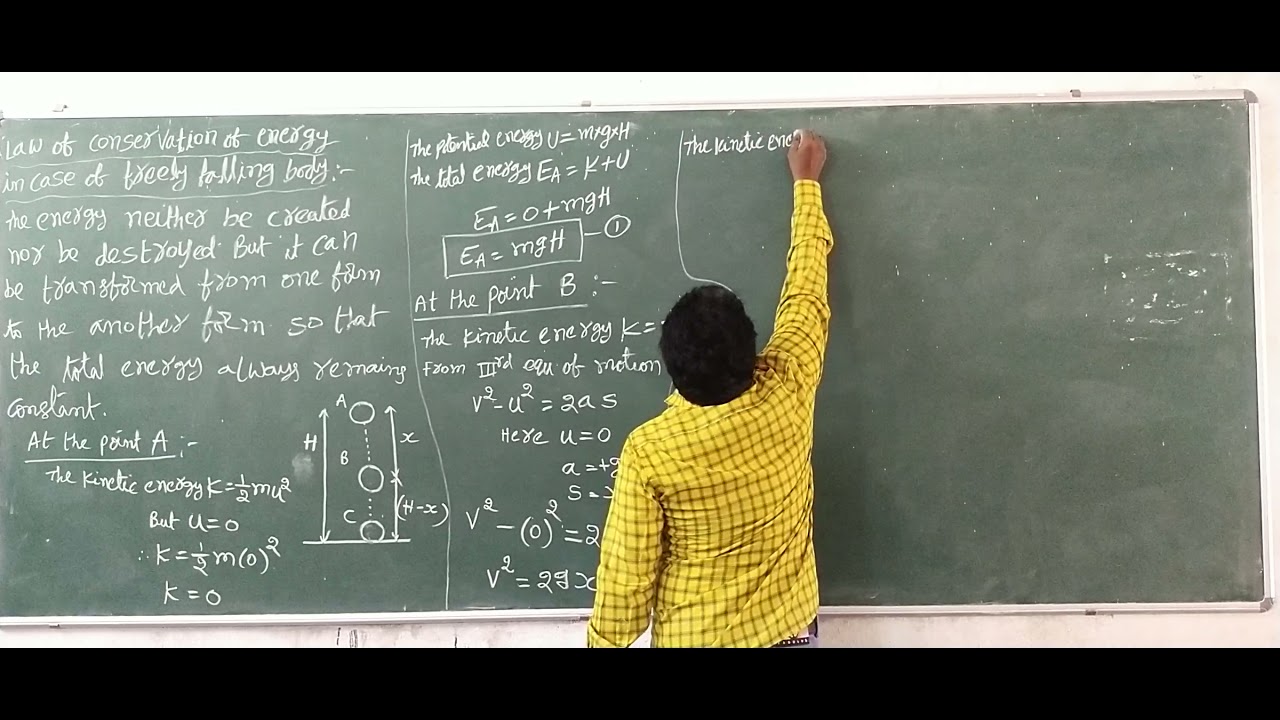 Law of conservation of energy
in case of freely falling body:-
The energy neither be created
nor be destroyed But it can
be transformed from one form
to the another form. so that
the total energy always remains
constant.
At the point A:-
The kinetic energy K=½mu²
But u=0
∴ K=½m(0)²
K=0
A
H
x
B
(H-x)
C
The potential energy U=m×g×H
The total energy E_A = K+U
E_A = 0+mgH
E_A = mgH —①
At the point B:-
The kinetic energy K=
From IIIrd equ of motion
V²-u² = 2as
Here u=0
a=+g
s=
V²-(0)²=2
V²=2gx
The kinetic ene